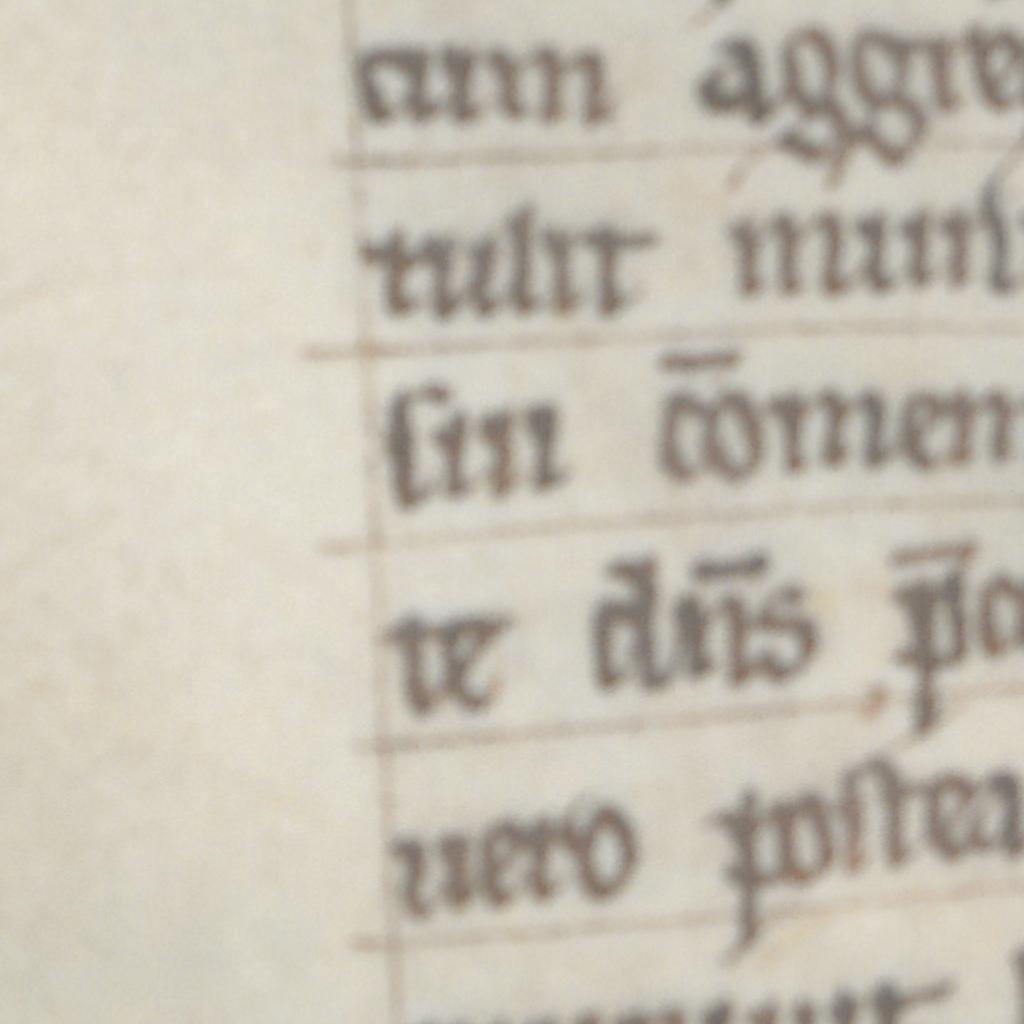 aim aggre
tulit muni
sin cōmen
te dn̄s p̄o
uero postea